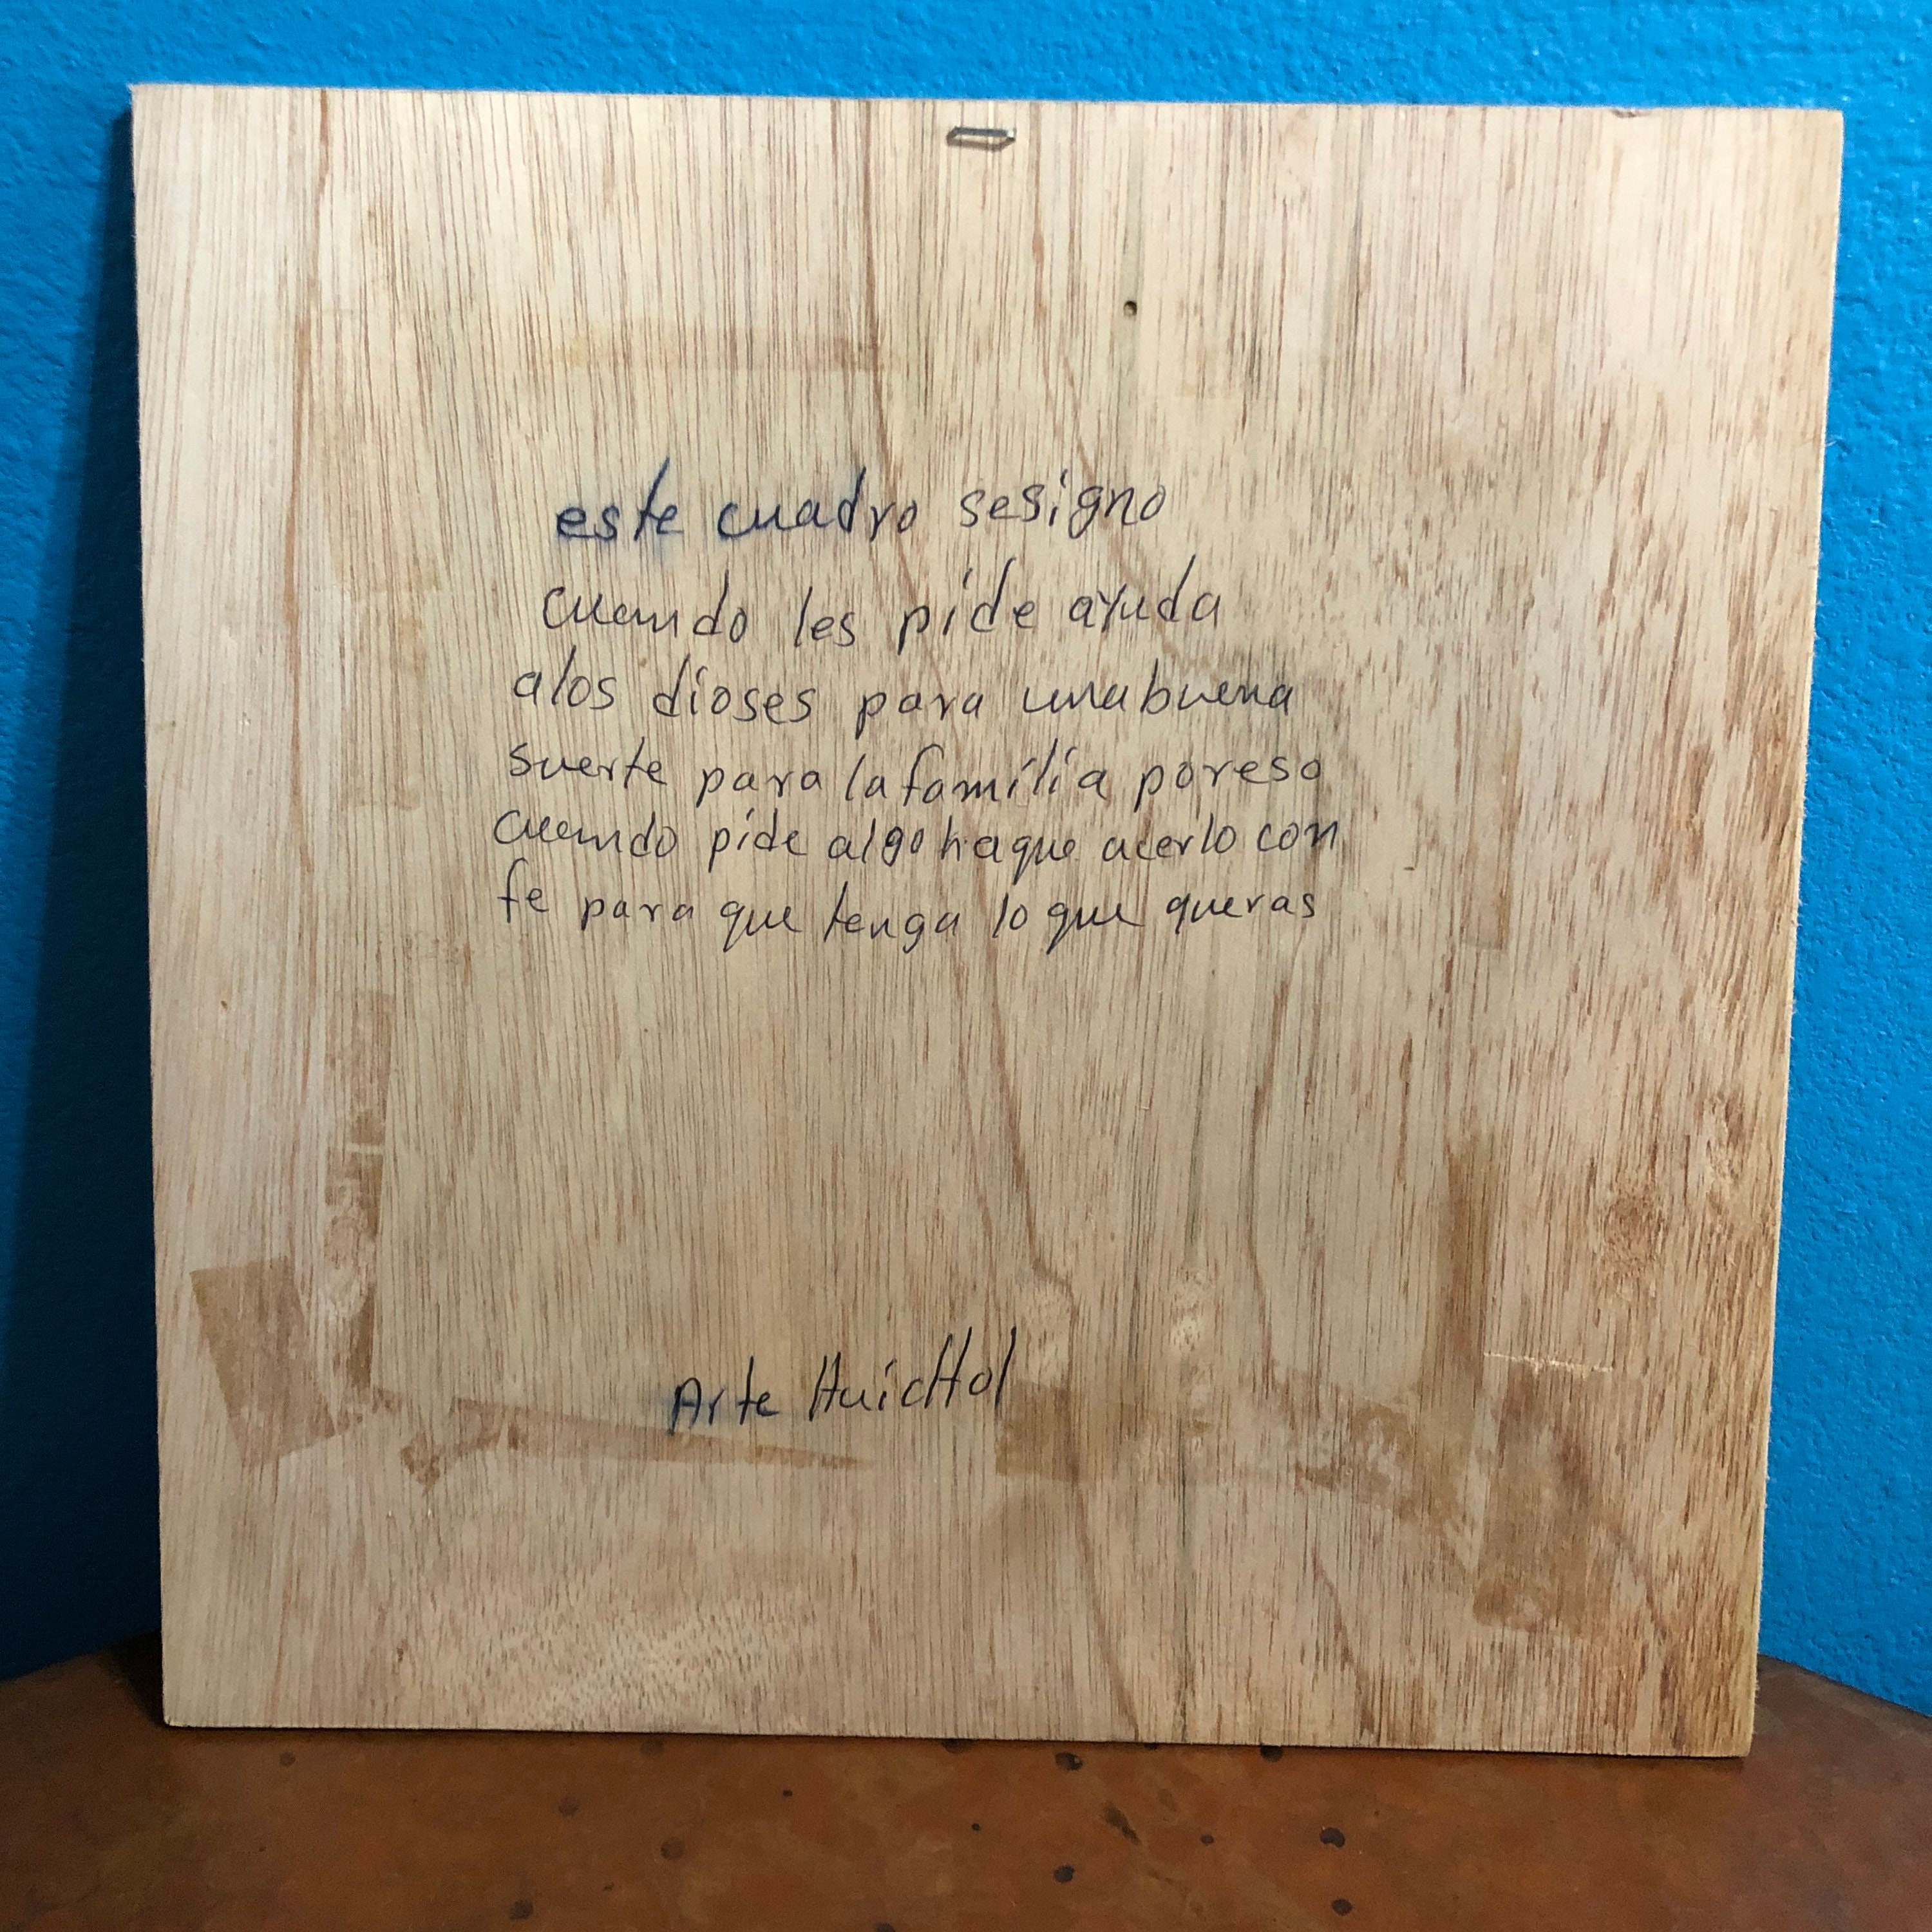 este cuadro sesigno
cuando les pide ayuda
alos dioses para unabuena
suerte para la familia poreso
cuando pide algo haque acerlo con
fe para que tenga lo que queras
Arte Huichol